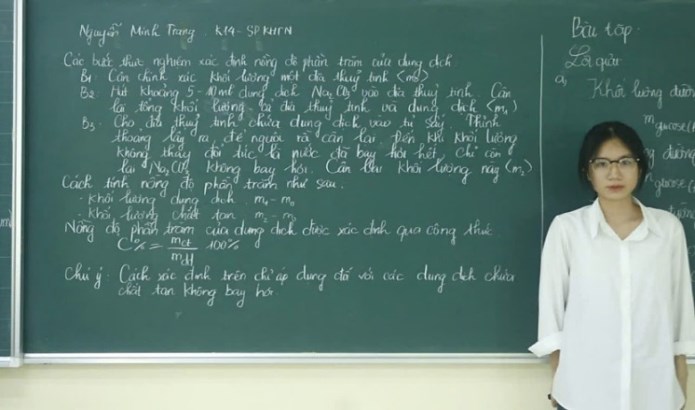 Nguyễn Minh Trang K14 - SP KHTN
Các bước thực nghiệm xác định nồng độ phần trăm của dung dịch
B1: Cân chính xác khối lượng một đĩa thuỷ tinh (m0)
B2: Hút khoảng 5 - 10 ml dung dịch Na2CO3 vào đĩa thuỷ tinh. Cân
lại tổng khối lượng của đĩa thuỷ tinh và dung dịch (m1)
B3: Cho đĩa thuỷ tinh chứa dung dịch vào tủ sấy. Thỉnh
thoảng lấy ra, để nguội rồi cân lại đến khi khối lượng
không thay đổi tức là nước đã bay hơi hết, chỉ còn
lại Na2CO3 không bay hơi. Cân lại khối lượng này (m2)
Cách tính nồng độ phần trăm như sau:
- Khối lượng dung dịch: m1 - m0
- Khối lượng chất tan: m2 - m0
Nồng độ phần trăm của dung dịch được xác định qua công thức
C% = mct / mdd 100%
Chú ý: Cách xác định trên chỉ áp dụng đối với các dung dịch chứa
chất tan không bay hơi.
Bài tập
Lời giải
a, Khối lượng đường
m glucose
đường
glucose